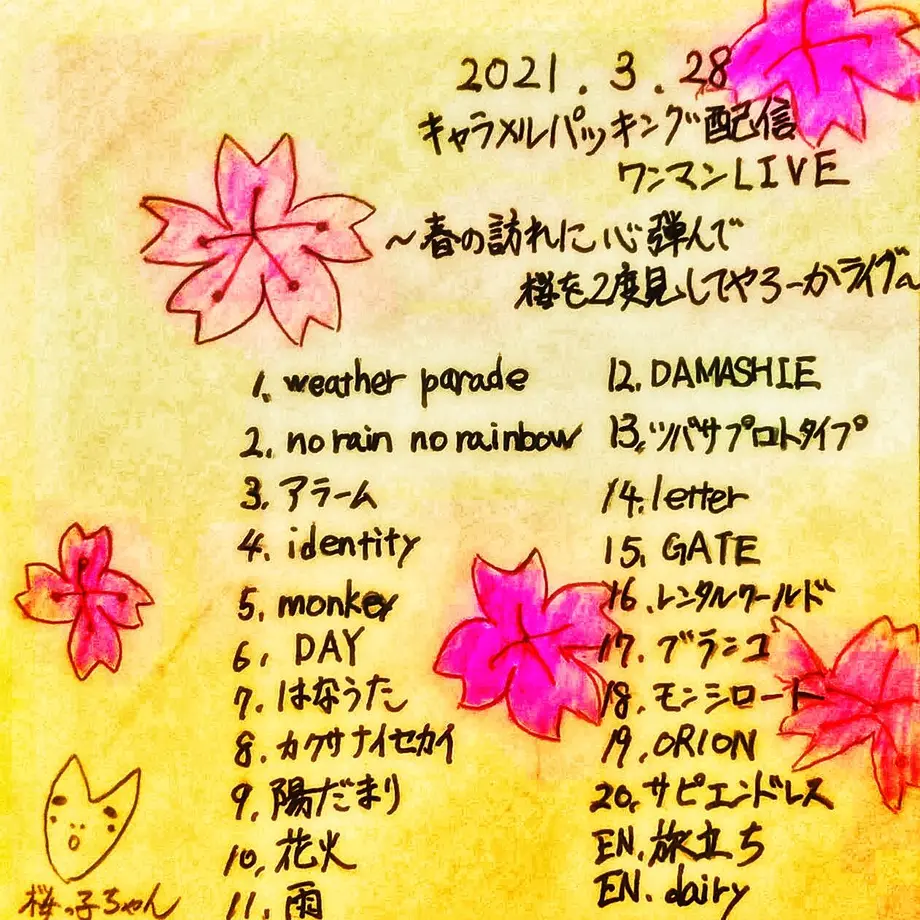 2021.3.28
キャラメルパッキング配信
ワンマンLIVE
~春の訪れに心弾んで
桜を2度見してやろーかライブ~
1. weather parade
2. no rain no rainbow
3. アラーム
4. identity
5. monkey
6. DAY
7. はなうた
8. カクサナイセカイ
9. 陽だまり
10. 花火
11. 雨
12. DAMASHIE
13. ツバサプロトタイプ
14. letter
15. GATE
16. レンタルワールド
17. ブランコ
18. モンシロート
19. ORION
20. サピエンドレス
EN. 旅立ち
EN. dairy
桜っ子ちゃん